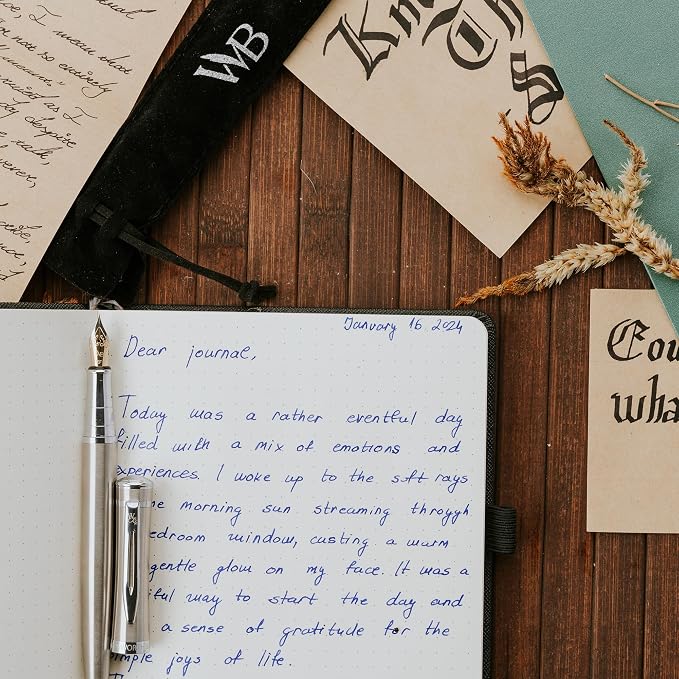 I mean what
not so entirely
as I
despite
WB
January 16 2024
Dear journal,
Today was a rather eventful day
filled with a mix of emotions and
experiences. I woke up to the soft rays
morning sun streaming throygh
edroom window, casting a warm
gentle glow on my face. It was a
iful way to start the day and
a sense of gratitude for the
mple joys of life.
Cou
wha